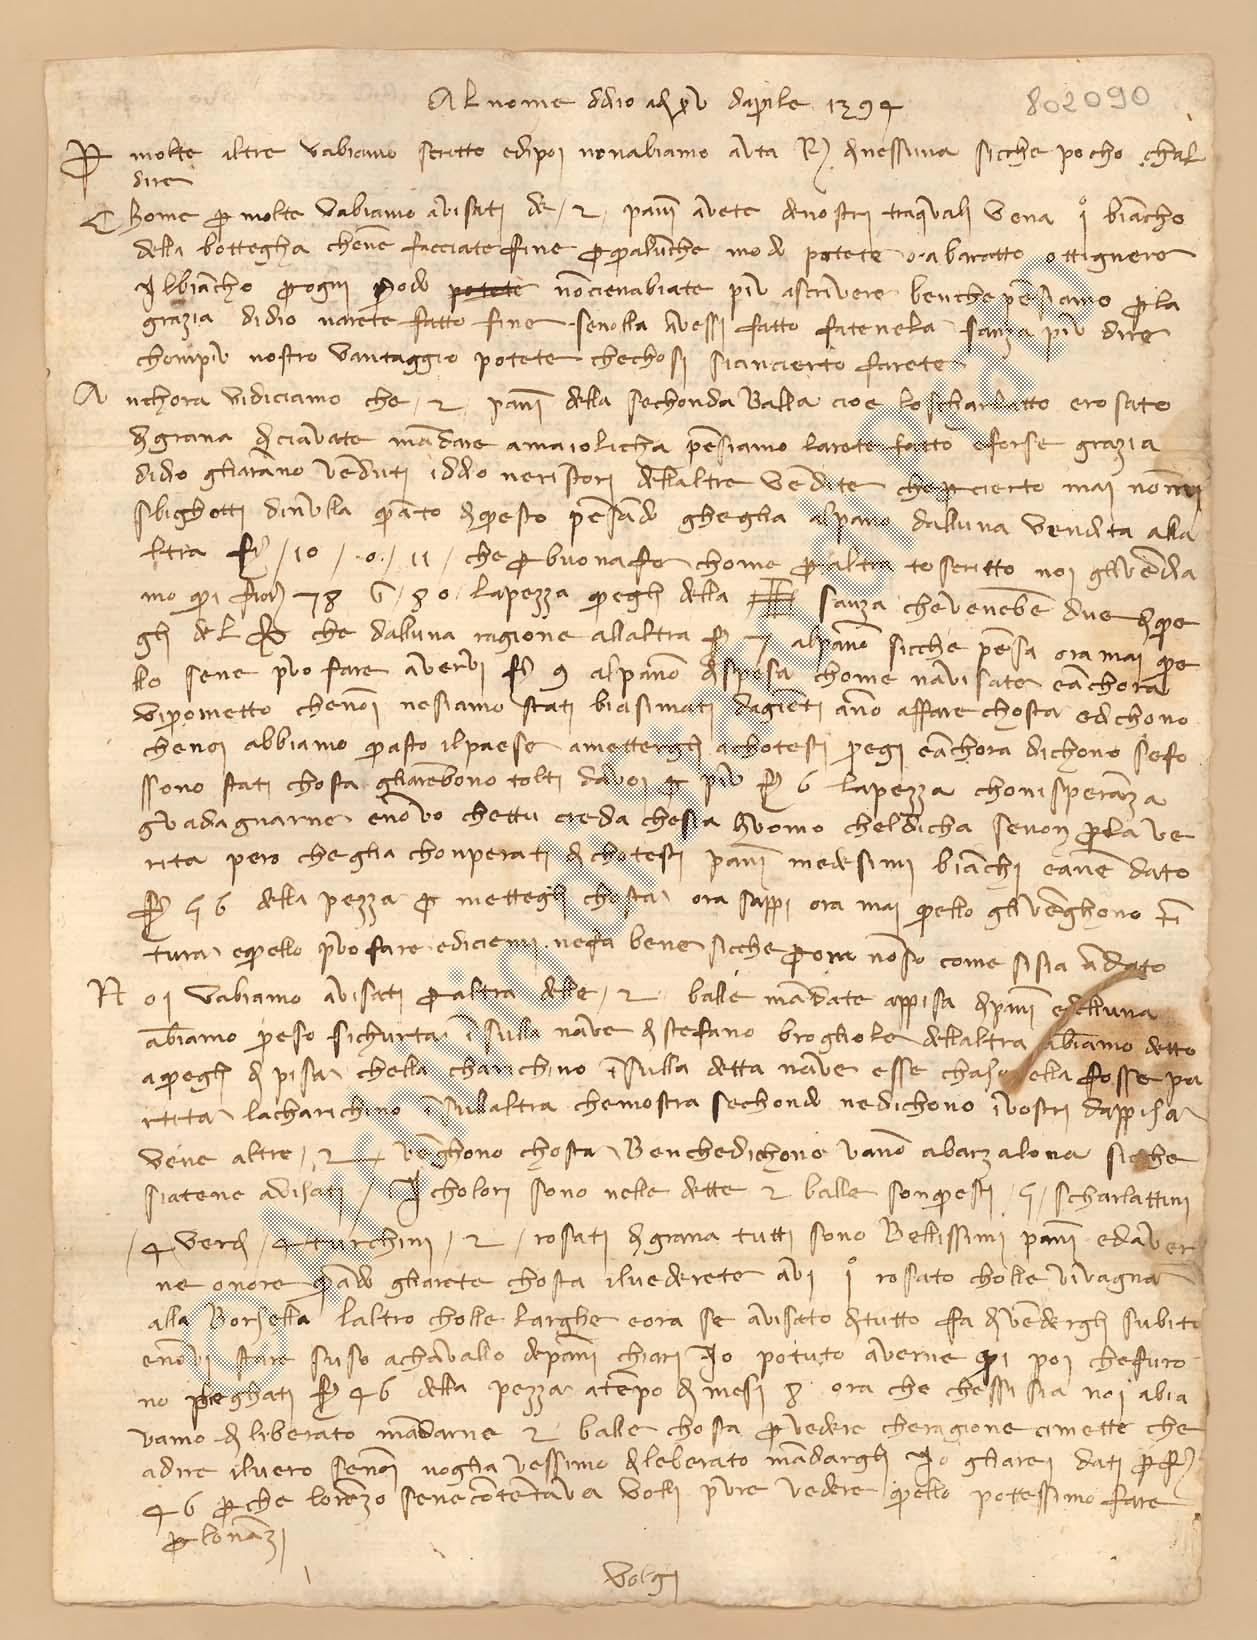 Al nome ddio adj xv daprile 1394
802090
P molte altre vabiamo scritto edipoi nonabiamo auta R di nessuna sicche pocho chal
dire
Chome p molte vabiamo avisati de / 2 / panni avete denostri traquali vena io biancho
della bottegha chene facciate fine p qualunche modo potete o abaratto o ttignere
Ilbiancho p ogni modo potete noncienabiate piu ascrivere benche pensiamo p la
grazia didio narete fatto fine senolla avessi fatto fatenela sanza piu dire
chonpiu nostro vantaggio potete chechosi sianciento farete
A nchora vidiciamo che / 2 / panni della sechonda Balla cioe loscharlatto erosato
digrana di ciavate mandare amaiolicha pensiamo larete fatto eforse grazia
didio gliarano venduti iddio neristori dellaltre vendite che p cierto mai nonmi
sbighotti dinulla quanto di questo pensando cheglia alpano dalluna vendita alla
ltra f / 10 / o / 11 / che p buonafe chome p altra to scritto noi glivendia
mo qui fior 78 / 80 / lapezza quegli della sanza chevenebe due di que
gli del che dalluna ragione allaltra f 7 alpano sicche pensa ora mai que
llo sene puo fare avervi f 9 alpano dispesa chome navisate eanchora
viprometto chenoi nesiamo stati biasimati dagienti anno affare chosta edichono
chenoi abbiamo guasto ilpaese amettergli achotesti pregi eanchora dichono sefo
ssono stati chosta gliarebono tolti davoi p piu f 6 lapezza chonisperanza
guadagnarne enonvo chettu creda chesia huomo cheldicha senon p la ve
rita pero cheglia chonperati di chotesti panni medesimi bianchi eanne dato
f 56 della pezza p mettegli chosta ora sappi ora mai quello glivenghono
tura equello puo fare ediciemi nefa bene sicche p ora nonso come sisia andato
N oi vabiamo avisati p altra delle / 2 / balle mandate appisa dipanni edelluna
abiamo preso sichurta insulla nave di stefano brogliole dellaltra abiamo detto
aquegli di pisa chella charichino insulla detta nave esse chaso ella fosse pa
rtita lacharichino insunaltra chemostra sechondo nedichono ivostri dappisa
vene altre / 2 / venghono chosta Benchedichono vanno abarzalona sicche
siatene avisati / I cholori sono nelle dette 2 balle sonquesti / 5 / scharlattini
/ 4 verdi / 4 turchini / 2 / rosati digrana tutti sono Bellissimi panni edaver
ne onore quando gliarete chosta ilvederete avi io rosato cholle vivagna
alla Borsella laltro cholle larghe eora se avisato ditutto fa divendergli subito
enonvi stare suso achavallo depanni chiari Io potuto averne qui poi chefuro
no pieghati f 46 della pezza atenpo di mesi 8 ora che chessi sia noi abia
vamo diliberato mandarne 2 balle chosta p vedere cheragione cimette che
adire ilvero senoi noglia vessimo dileberato mandargli Io gliarei dati p f
46 p che lorenzo senecontentava volli pure vedere quello potessimo fare
p lonanzi
Volgi